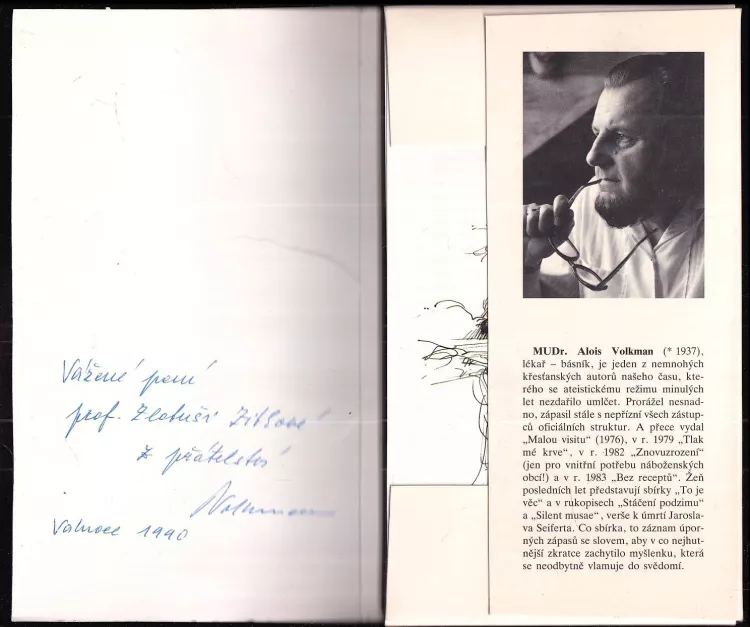 Vážené paní
prof. Zlatuši
z přátelství
Volkman
Vánoce 1990
MUDr. Alois Volkman (* 1937),
lékař – básník, je jeden z nemnohých
křesťanských autorů našeho času, kte-
rého se ateistickému režimu minulých
let nezdařilo umlčet. Prorážel nesnad-
no, zápasil stále s nepřízní všech zástup-
ců oficiálních struktur. A přece vydal
„Malou visitu“ (1976), v r. 1979 „Tlak
mé krve“, v r. 1982 „Znovuzrození“
(jen pro vnitřní potřebu náboženských
obcí!) a v r. 1983 „Bez receptů“. Žeň
posledních let představují sbírky „To je
věc“ a v rukopisech „Stáčení podzimu“
a „Silent musae“, verše k úmrtí Jarosla-
va Seiferta. Co sbírka, to záznam úpor-
ných zápasů se slovem, aby v co nejhut-
nější zkratce zachytilo myšlenku, která
se neodbytně vlamuje do svědomí.